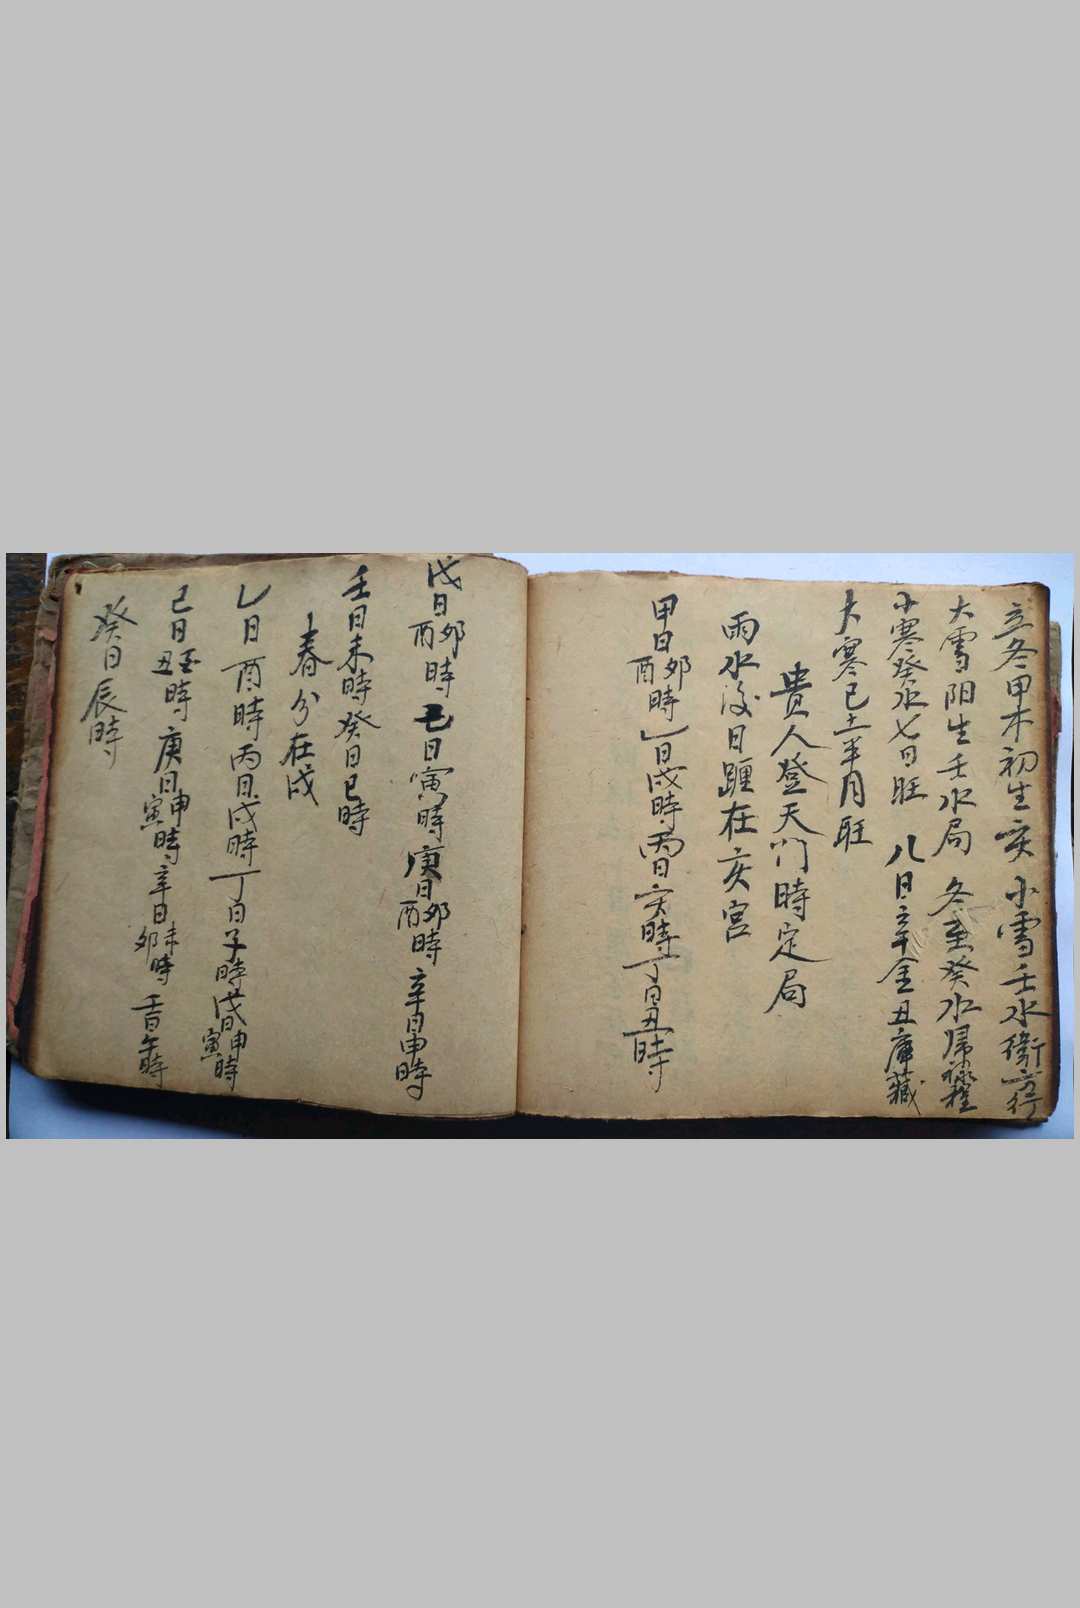 立冬甲木初生亥 小雪壬水衛方行
大雪阳生壬水局 冬至癸水歸禄程
小寒癸水七日旺 八日辛金丑庫藏
大寒已土半月旺
貴人登天门時定局
雨水後日躔在亥宮
甲日卯酉時乚日戌時丙日亥時丁日丑時
戊日卯酉時己日寅時庚日卯酉時辛日申時
壬日未時癸日巳時
春分在戌
乚日酉時丙日戌時丁日子時戊日申寅時
己日丑時庚日申寅時辛日未卯時壬日午時
癸日辰時